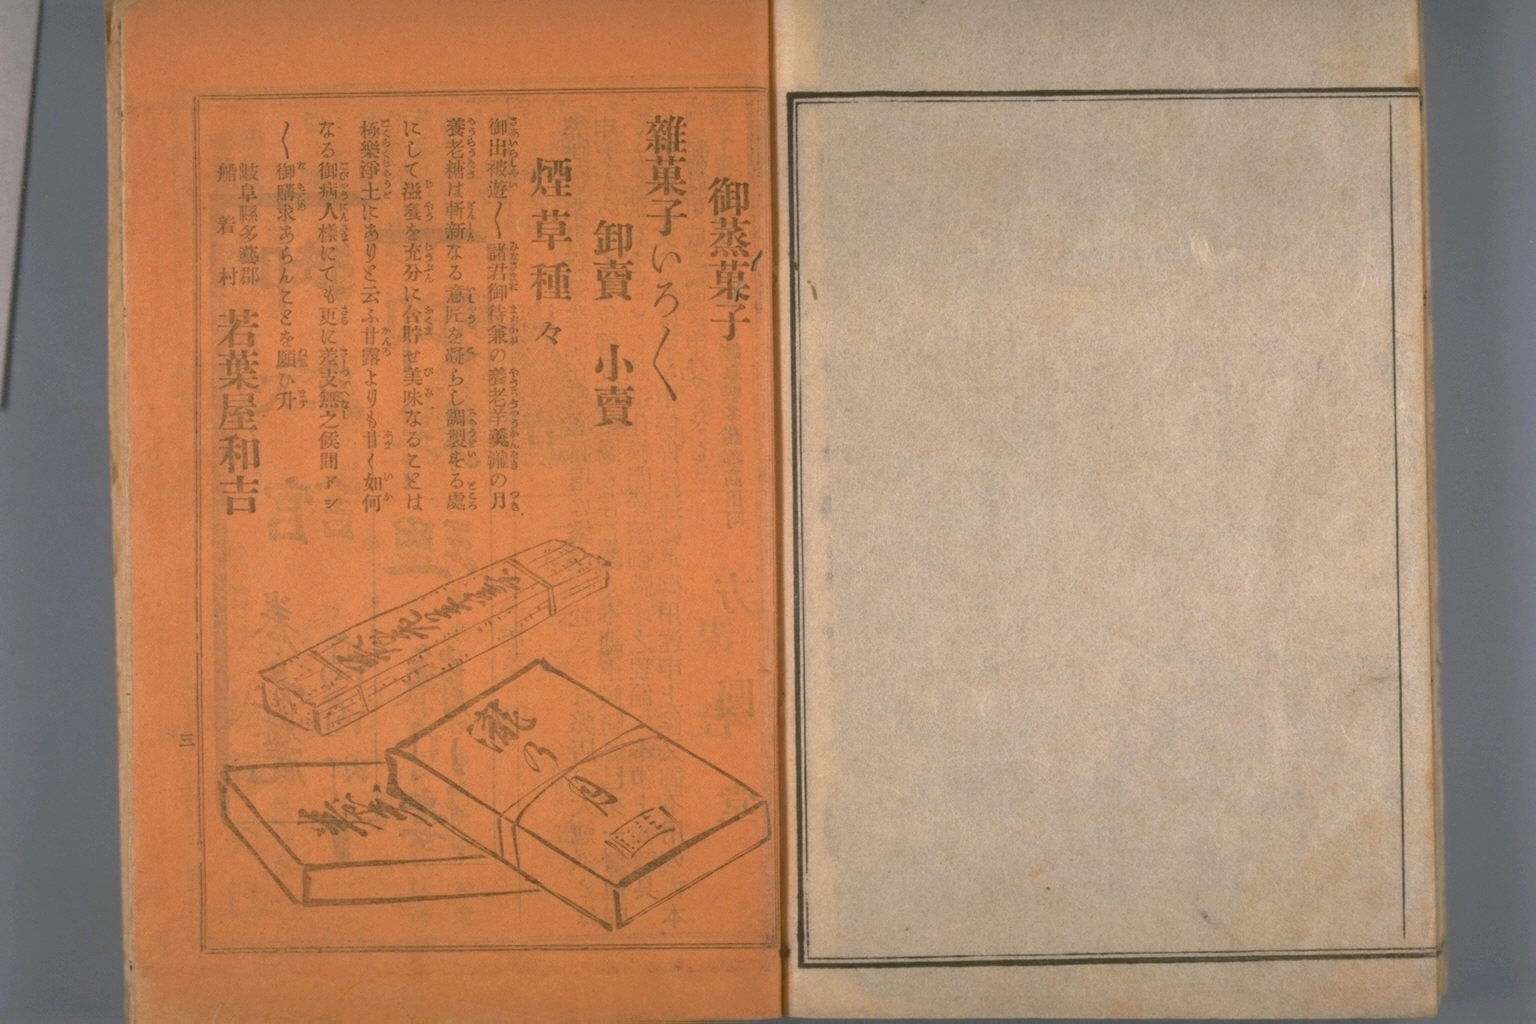 御蒸菓子
雜菓子いろ〱
卸賣 小賣
煙草種々
御出被遊〱諸君御待兼の養老羊羹瀧の月
養老糖は斬新なる意匠を凝らし調製せる處
にして滋養を充分に含貯せ美味なることは
極樂淨土にありと云ふ甘露よりも甘く如何
なる御病人樣にても更に差支無之候間ドシ
〱御購求あらんことを願ひ升
岐阜縣多藝郡
船若村
若葉屋和吉
三
瀧の月